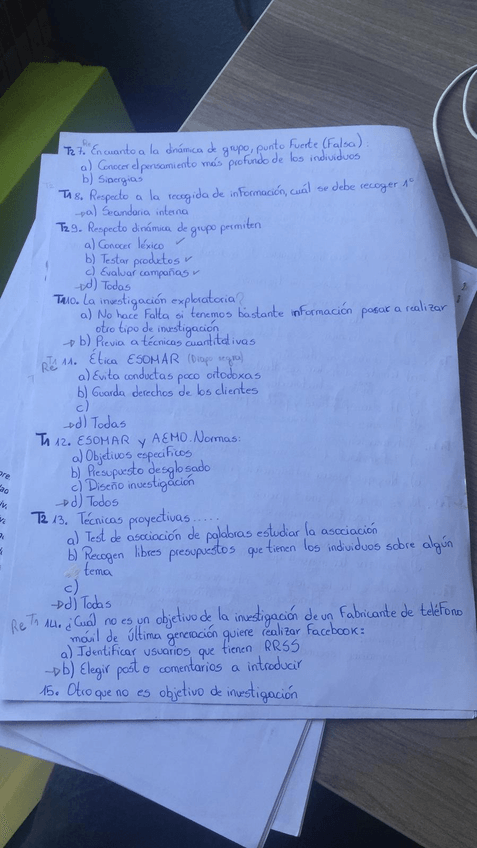 T2 7. En cuanto a la dinámica de grupo, punto Fuerte (Falsa):
a) Conocer el pensamiento más profundo de los individuos
b) Sinergias
T1 8. Respecto a la recogida de información, cuál se debe recoger 1º
→a) Secundaria interna
T2 9. Respecto dinámica de grupo permiten
a) Conocer léxico ✓
b) Testar productos ✓
c) Evaluar campañas ✓
→d) Todas
T1 10. La investigación exploratoria?
a) No hace Falta si tenemos bastante información pasar a realizar
otro tipo de investigación
→b) Previa a técnicas cuantitativas
Re T1 11. Ética ESOMAR
a) Evita conductas poco ortodoxas
b) Guarda derechos de los clientes
c)
→d) Todas
T1 12. ESOMAR y AEMO. Normas:
a) Objetivos específicos
b) Presupuesto desglosado
c) Diseño investigación
→d) Todos
T2 13. Técnicas proyectivas.....
a) Test de asociación de palabras estudiar la asociación
b) Recogen libres presupuestos que tienen los individuos sobre algún
tema
c)
→d) Todas
Re T1 14. ¿Cuál no es un objetivo de la investigación de un Fabricante de teléfono
móvil de última generación quiere realizar Facebook:
a) Identificar usuarios que tienen RRSS
→b) Elegir post o comentarios a introducir
15. Otro que no es objetivo de investigación